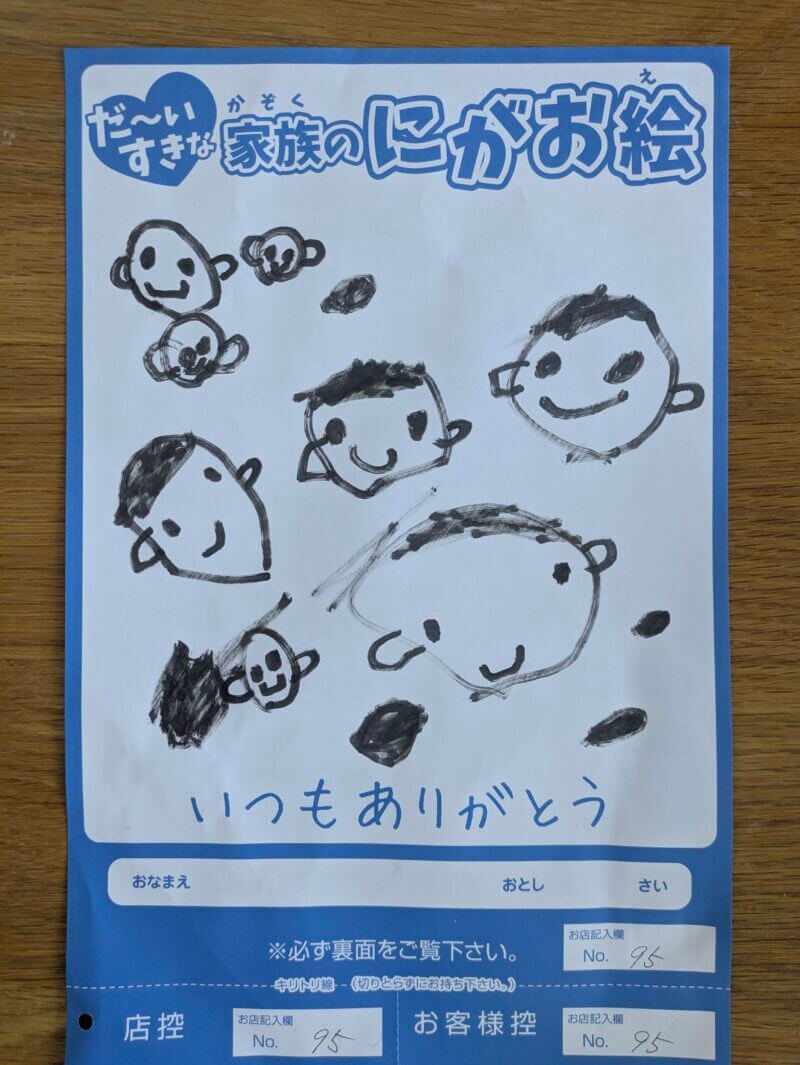 だ〜い
すきな
かぞく
え
家族のにがお絵
いつもありがとう
おなまえ おとし さい
※必ず裏面をご覧下さい。
お店記入欄
No. 95
キリトリ線 (切りとらずにお持ち下さい。)
店控
お店記入欄
No. 95
お客様控
お店記入欄
No. 95